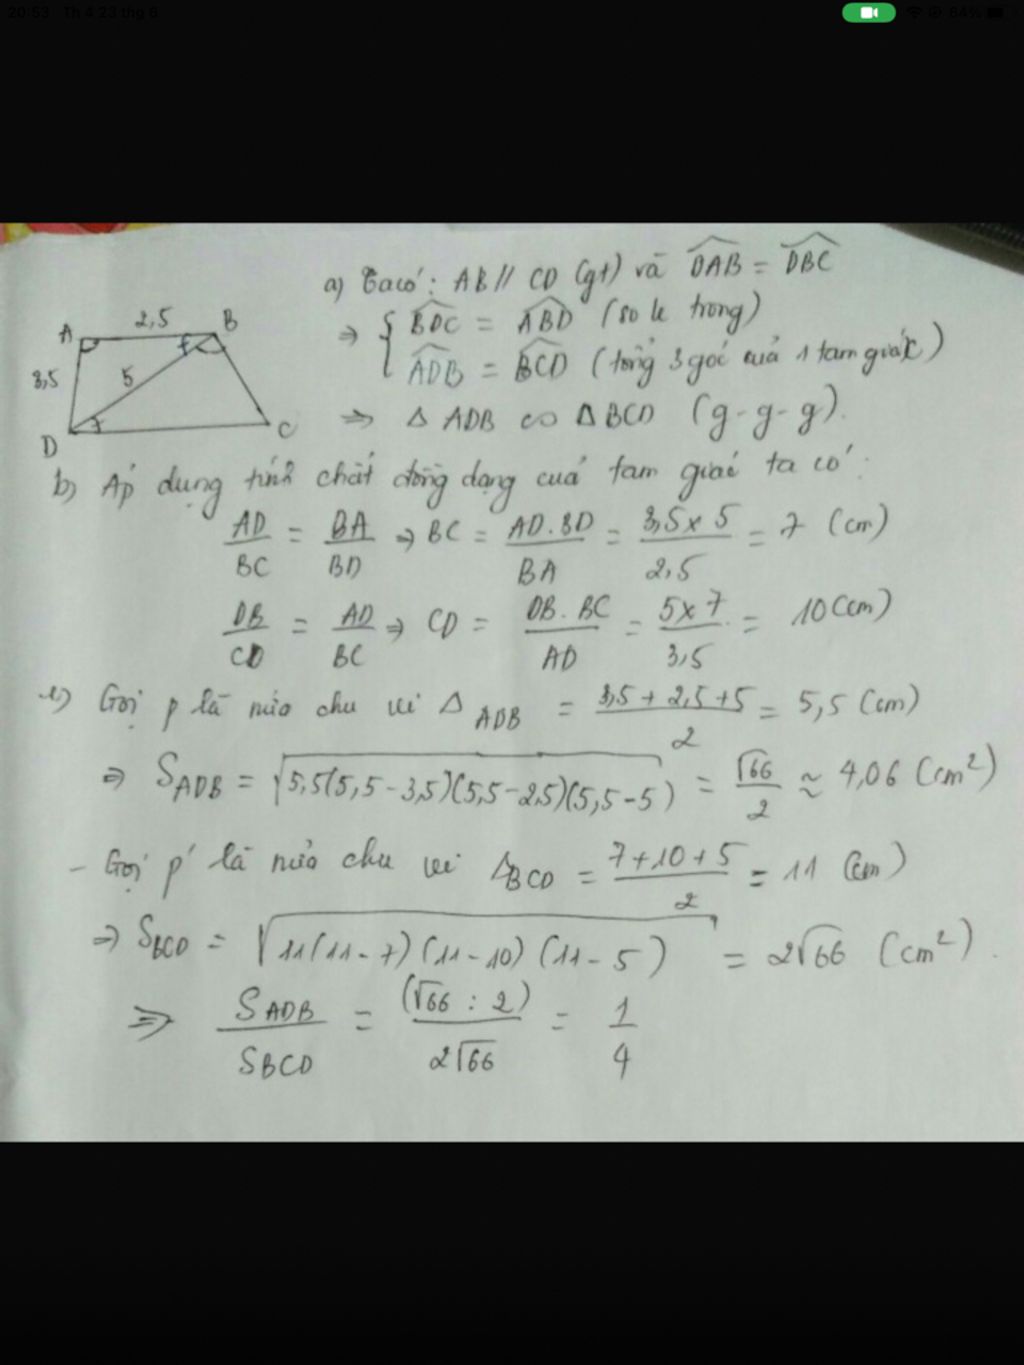 20:53 Th 4 23 thg 6
64%
a) Ta có: AB // CD (gt) và \widehat{DAB} = \widehat{DBC}
A 2,5 B
⇒ { \widehat{BDC} = \widehat{ABD} (so le trong)
3,5 5
\widehat{ADB} = \widehat{BCD} (tổng 3 góc của 1 tam giác)
D C
⇒ Δ ADB ∽ Δ BCD (g-g-g).
b) Áp dụng tính chất đồng dạng của tam giác ta có:
AD/BC = BA/BD ⇒ BC = AD.BD/BA = 3,5 x 5/2,5 = 7 (cm)
DB/CD = AD/BC ⇒ CD = DB.BC/AD = 5 x 7/3,5 = 10 (cm)
c) Gọi p là nửa chu vi Δ ADB = 3,5 + 2,5 + 5/2 = 5,5 (cm)
⇒ S ADB = √5,5(5,5-3,5)(5,5-2,5)(5,5-5) = √66/2 ≈ 4,06 (cm²)
- Gọi p' là nửa chu vi Δ BCD = 7+10+5/2 = 11 (cm)
⇒ S BCD = √11(11-7)(11-10)(11-5) = 2√66 (cm²).
⇒ S ADB/S BCD = (√66 : 2)/2√66 = 1/4